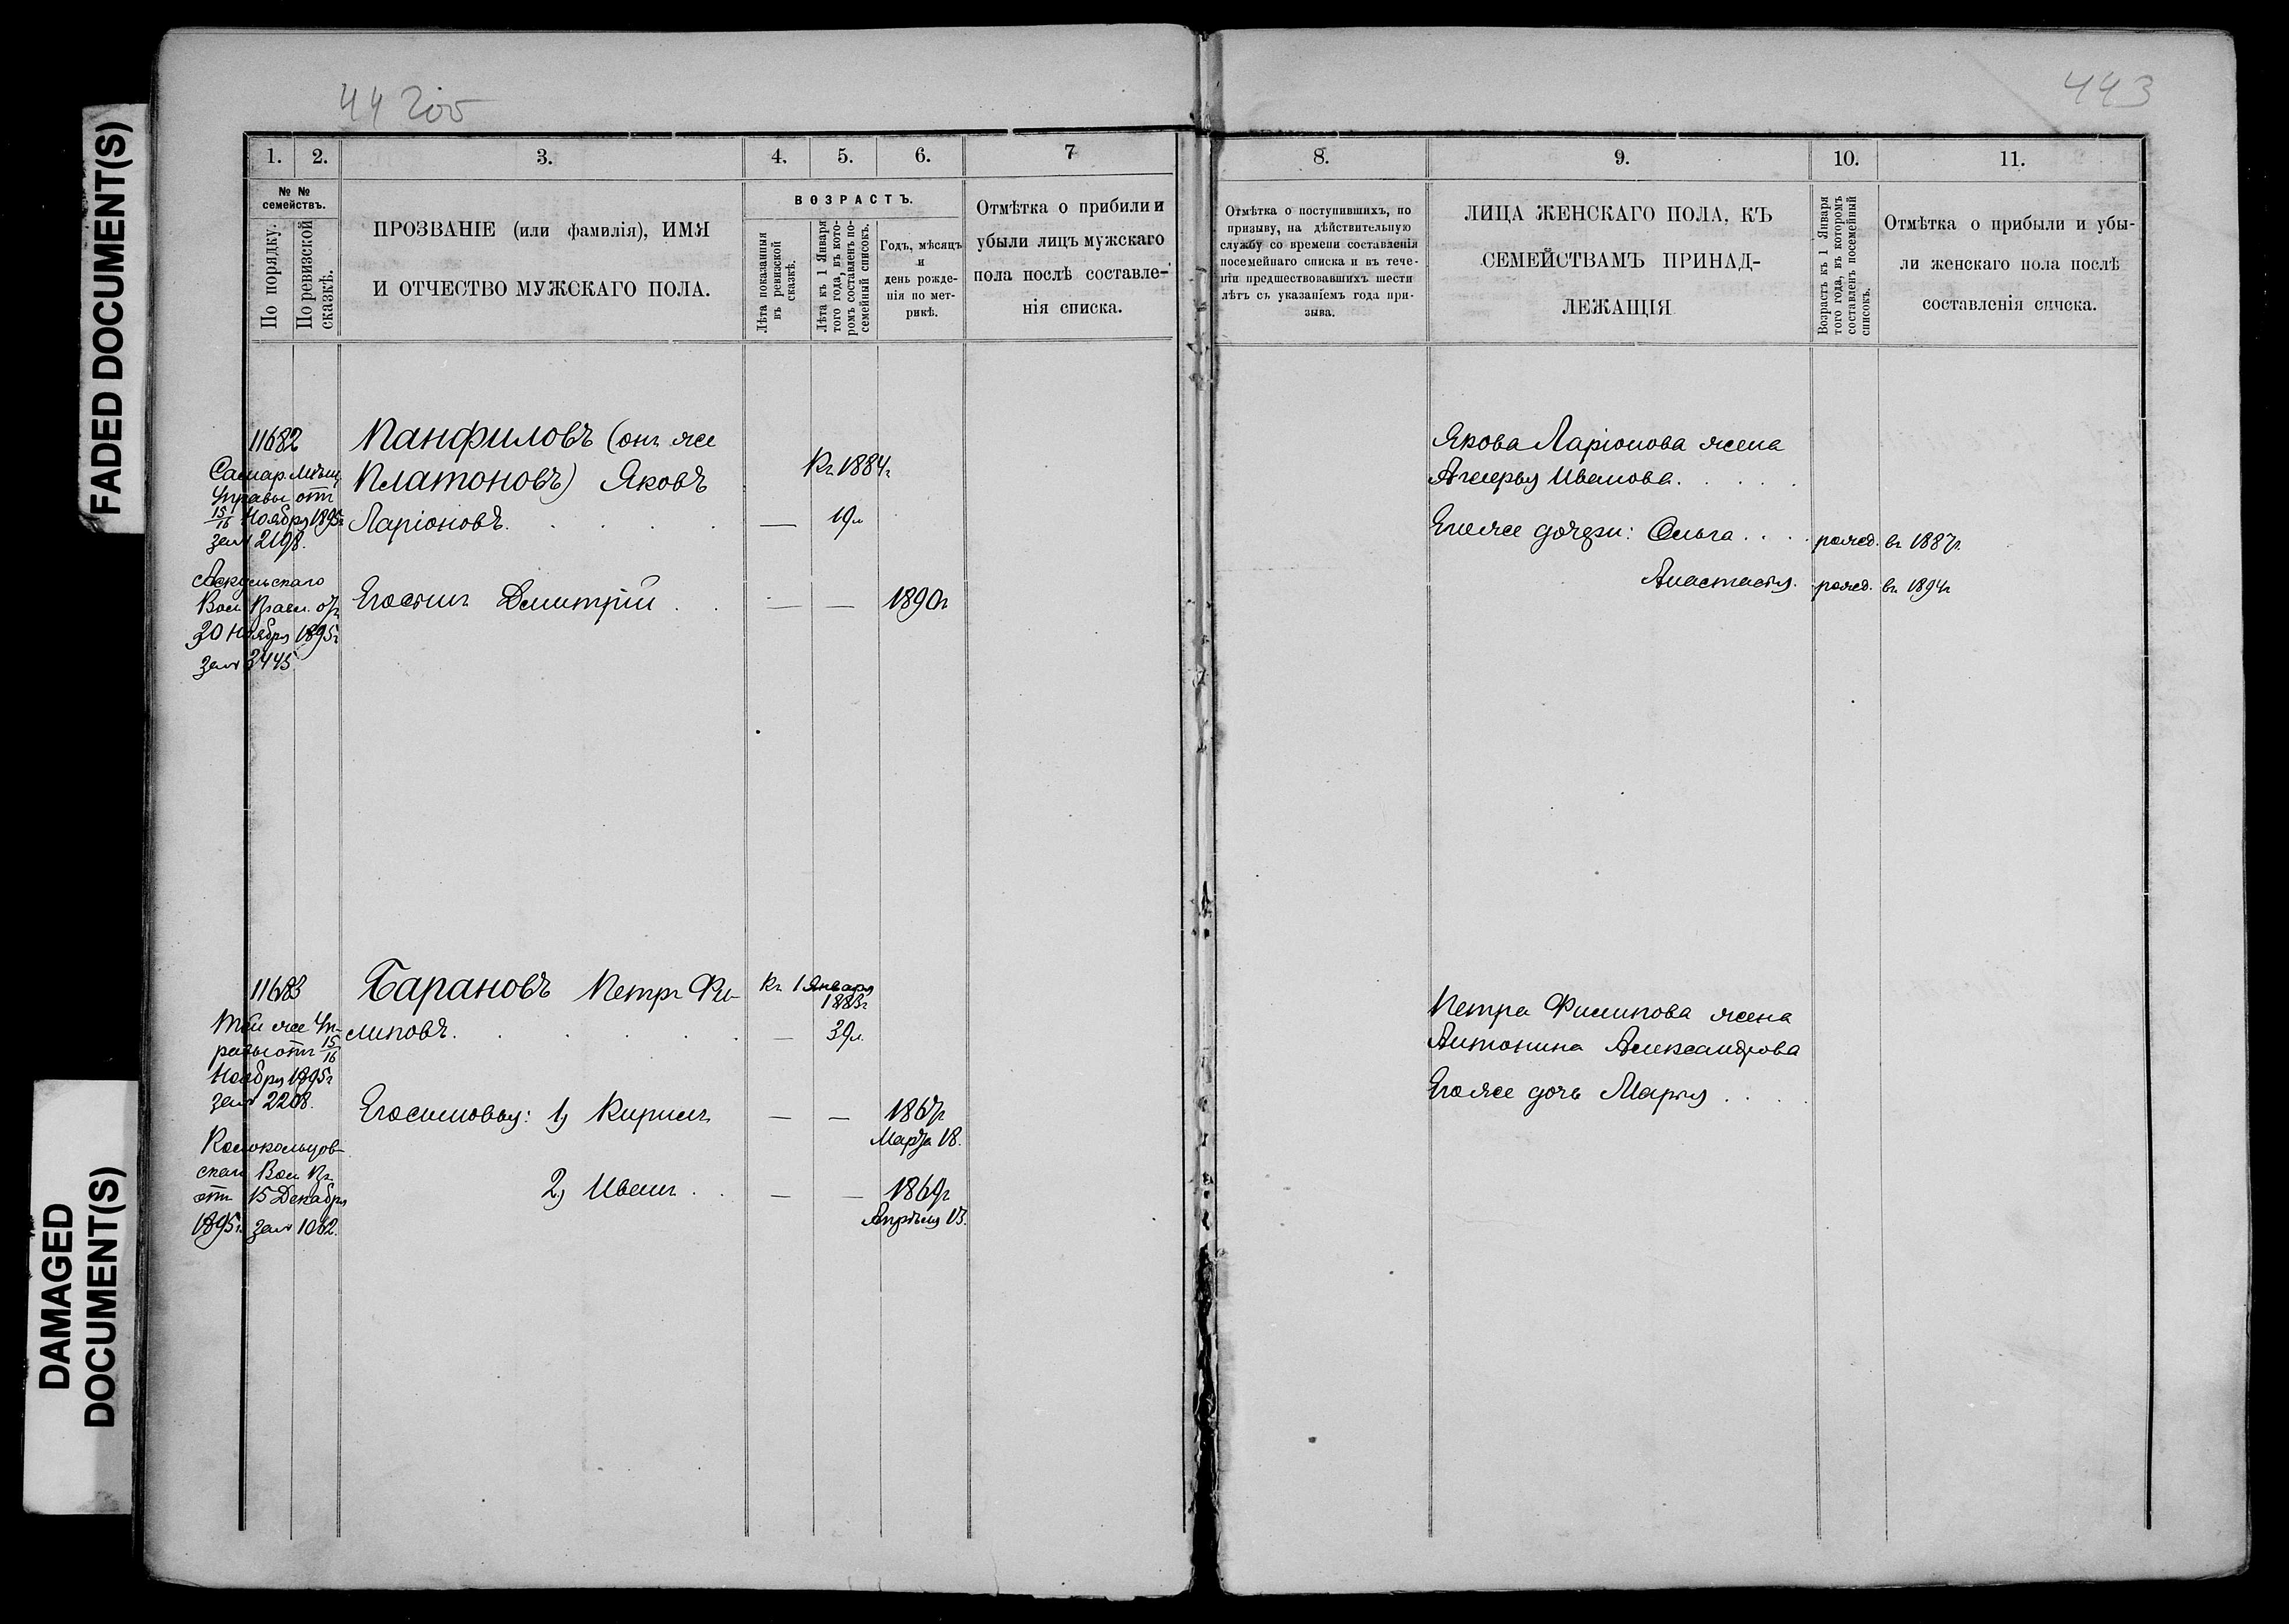 FADED DOCUMENT(S)
DAMAGED
DOCUMENT(S)
442об
1. 2. 3. 4. 5. 6. 7
№ №
семействъ.
По порядку.
По ревизской
сказкѣ.
ПРОЗВАНІЕ (или фамилія), ИМЯ
И ОТЧЕСТВО МУЖСКАГО ПОЛА.
ВОЗРАСТЪ.
Лѣта показанныя
въ ревизской
сказкѣ.
Лѣта къ 1 Января
того года, въ кото-
ромъ составленъ по-
семейный списокъ.
Годъ, мѣсяцъ
и
день рожде-
нія по мет-
рикѣ.
Отмѣтка о прибыли и
убыли лицъ мужскаго
пола послѣ составле-
нія списка.
11682
Самар. Мѣщ.
Управы отъ
15/16 Ноября 1895г
за № 2198.
Аскульскаго
Вол. Правл. отъ
30 Ноября 1895г
за № 3445
Панфиловъ (онъ же
Платоновъ) Яковъ
Ларіоновъ. . . . .
Къ 1884г
— 19л
Егосынъ Дмитрій . . — — 1890г
11683
Той же Уп-
равы отъ 15/16
Ноября 1895г
за № 2208.
Колокольцов-
скаго Вол. Пр.
отъ 15 Декабря
1895г. за № 1062.
Барановъ Петръ Фи-
липовъ. . . . . .
Къ 1 Января
1883г
— 39л.
Егосыновья: 1) Кирилъ — — 1867г
Марта 18.
2) Иванъ . . — — 1869г
Апрѣля 13.
443
8. 9. 10. 11.
Отмѣтка о поступившихъ, по
призыву, на дѣйствительную
службу со времени составленія
посемейнаго списка и въ тече-
ніи предшествовавшихъ шести
лѣтъ съ указаніемъ года при-
зыва.
ЛИЦА ЖЕНСКАГО ПОЛА, КЪ
СЕМЕЙСТВАМЪ ПРИНАД-
ЛЕЖАЩІЯ
Возрастъ къ 1 Января
того года, въ которомъ
составленъ посемейный
списокъ.
Отмѣтка о прибыли и убы-
ли женскаго пола послѣ
составленія списка.
Якова Ларіонова жена
Иванова. . . . .
Егоже дочери: Ольга . . . . рожд. въ 1887г
Анастасія. рожд. въ 1894г
Петра Филипова жена
Антонина Александрова
Егоже дочь Марья . . . .